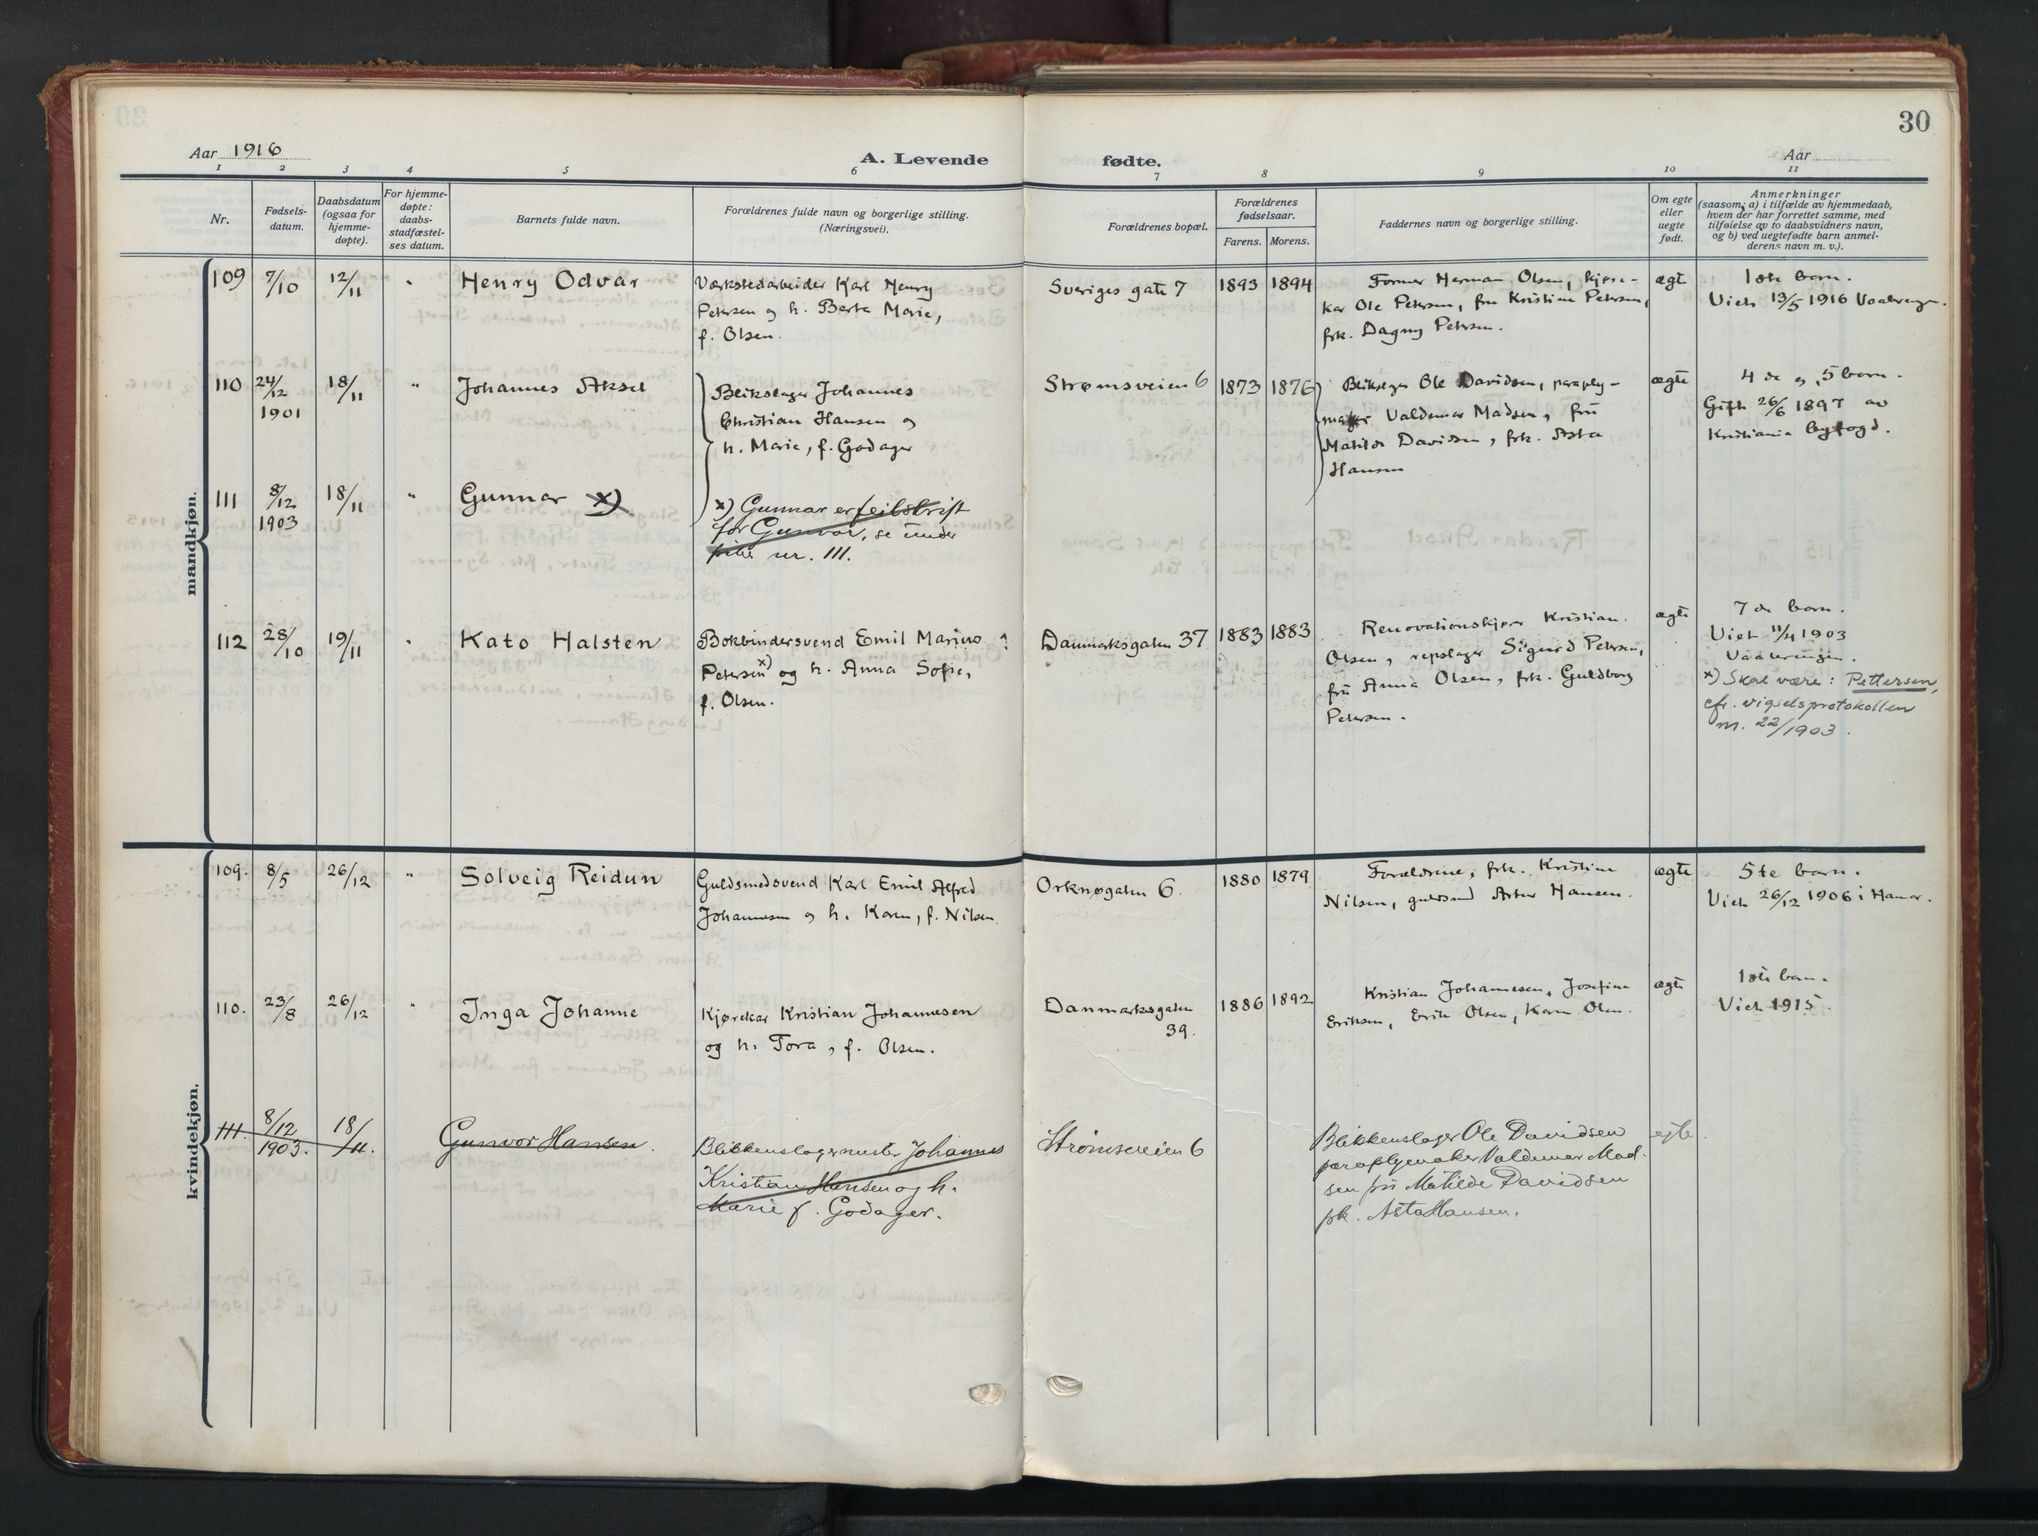 30
Aar 1916
A. Levende
fødte.
Aar
1 2 3 4 5 6 7 8 9 10 11
Nr.
Fødsels-
datum.
Daabsdatum
(ogsaa for
hjemme-
døpte).
For hjemme-
døpte:
daabs-
stadfæstel-
ses datum.
Barnets fulde navn.
Forældrenes fulde navn og borgerlige stilling.
(Næringsvei).
Forældrenes bopæl.
Forældrenes
fødselsaar.
Farens. Morens.
Faddernes navn og borgerlige stilling.
Om egte
eller
uegte
født.
Anmerkninger
(saasom, a) i tilfælde av hjemmedaab,
hvem der har forrettet samme, med
tilføielse av to daabsvidners navn,
og b) ved uegtefødte barn anmel-
derens navn m. v.).
mandkjøn.
109 7/10 12/11 " Henry Odvar
Værkstedarbeider Karl Henry
Petersen og h. Berta Marie,
f. Olsen.
Sveriges gate 7 1893 1894
Former Herman Olsen, kjøre-
kar Ole Petersen, fru Kristine Petersen,
frk. Dagny Petersen.
ægt
1ste barn.
Viet 13/5 1916 Vaalerengen.
110 24/12 1901 18/11 " Johannes Aksel
Blikslager Johannes
Christian Hansen og
h. Marie, f. Godager
Strømsveien 6 1873 1876
Blikslager Ole Davidsen, paraply-
mager Valdemar Madsen, fru
Matilde Davidsen, frk. Asta
Hansen
ægte
4 de og 5 barn.
Gift 26/6 1897 av
Kristiania byfogd.
111 8/12 1903 18/11 " Gunnar x)
x) Gunnar er feilskrift
for Gunvor, se under
piker nr. 111.
112 28/10 19/11 " Kato Halsten
Bokbindersvend Emil Marino ?
Petersen x) og h. Anna Sofie,
f. Olsen.
Danmarksgaten 37 1883 1883
Renovationskjører Kristian
Olsen, repslager Sigurd Petersen,
fru Anna Olsen, frk. Guldborg
Petersen.
ægte
7 de barn.
Viet 11/4 1903
Vaalerengen.
x) Skal være: Pettersen,
cfr. vigselsprotokollen
nr. 22/1903.
kvindekjøn.
109. 8/5 26/12 " Solveig Reidun
Guldsmedsvend Karl Emil Alfred
Johannesen og h. Karen, f. Nilsen.
Orknøgaten 6. 1880 1879
Forældrene, frk. Kristine
Nilsen, guldsmd Artur Hansen.
ægte
5te barn.
Viet 26/12 1906 i Hamar.
110. 23/8 26/12 " Inga Johanne
Kjørekar Kristian Johannesen
og h. Tora, f. Olsen.
Danmarksgaten
39. 1886 1892
Kristian Johannesen, Josefine
Eriksen, Erik Olsen, Karen Olsen.
ægte
1ste barn.
Viet 1915.
111. 8/12 1903. 18/11. Gunvor Hansen.
Blikkenslagermester Johannes
Kristian Hansen og h.
Marie f. Godager.
Strømsveien 6
Blikkenslager Ole Davidsen
paraplymaker Valdemar Mad-
sen fru Matilde Davidsen
frk. Asta Hansen.
egte